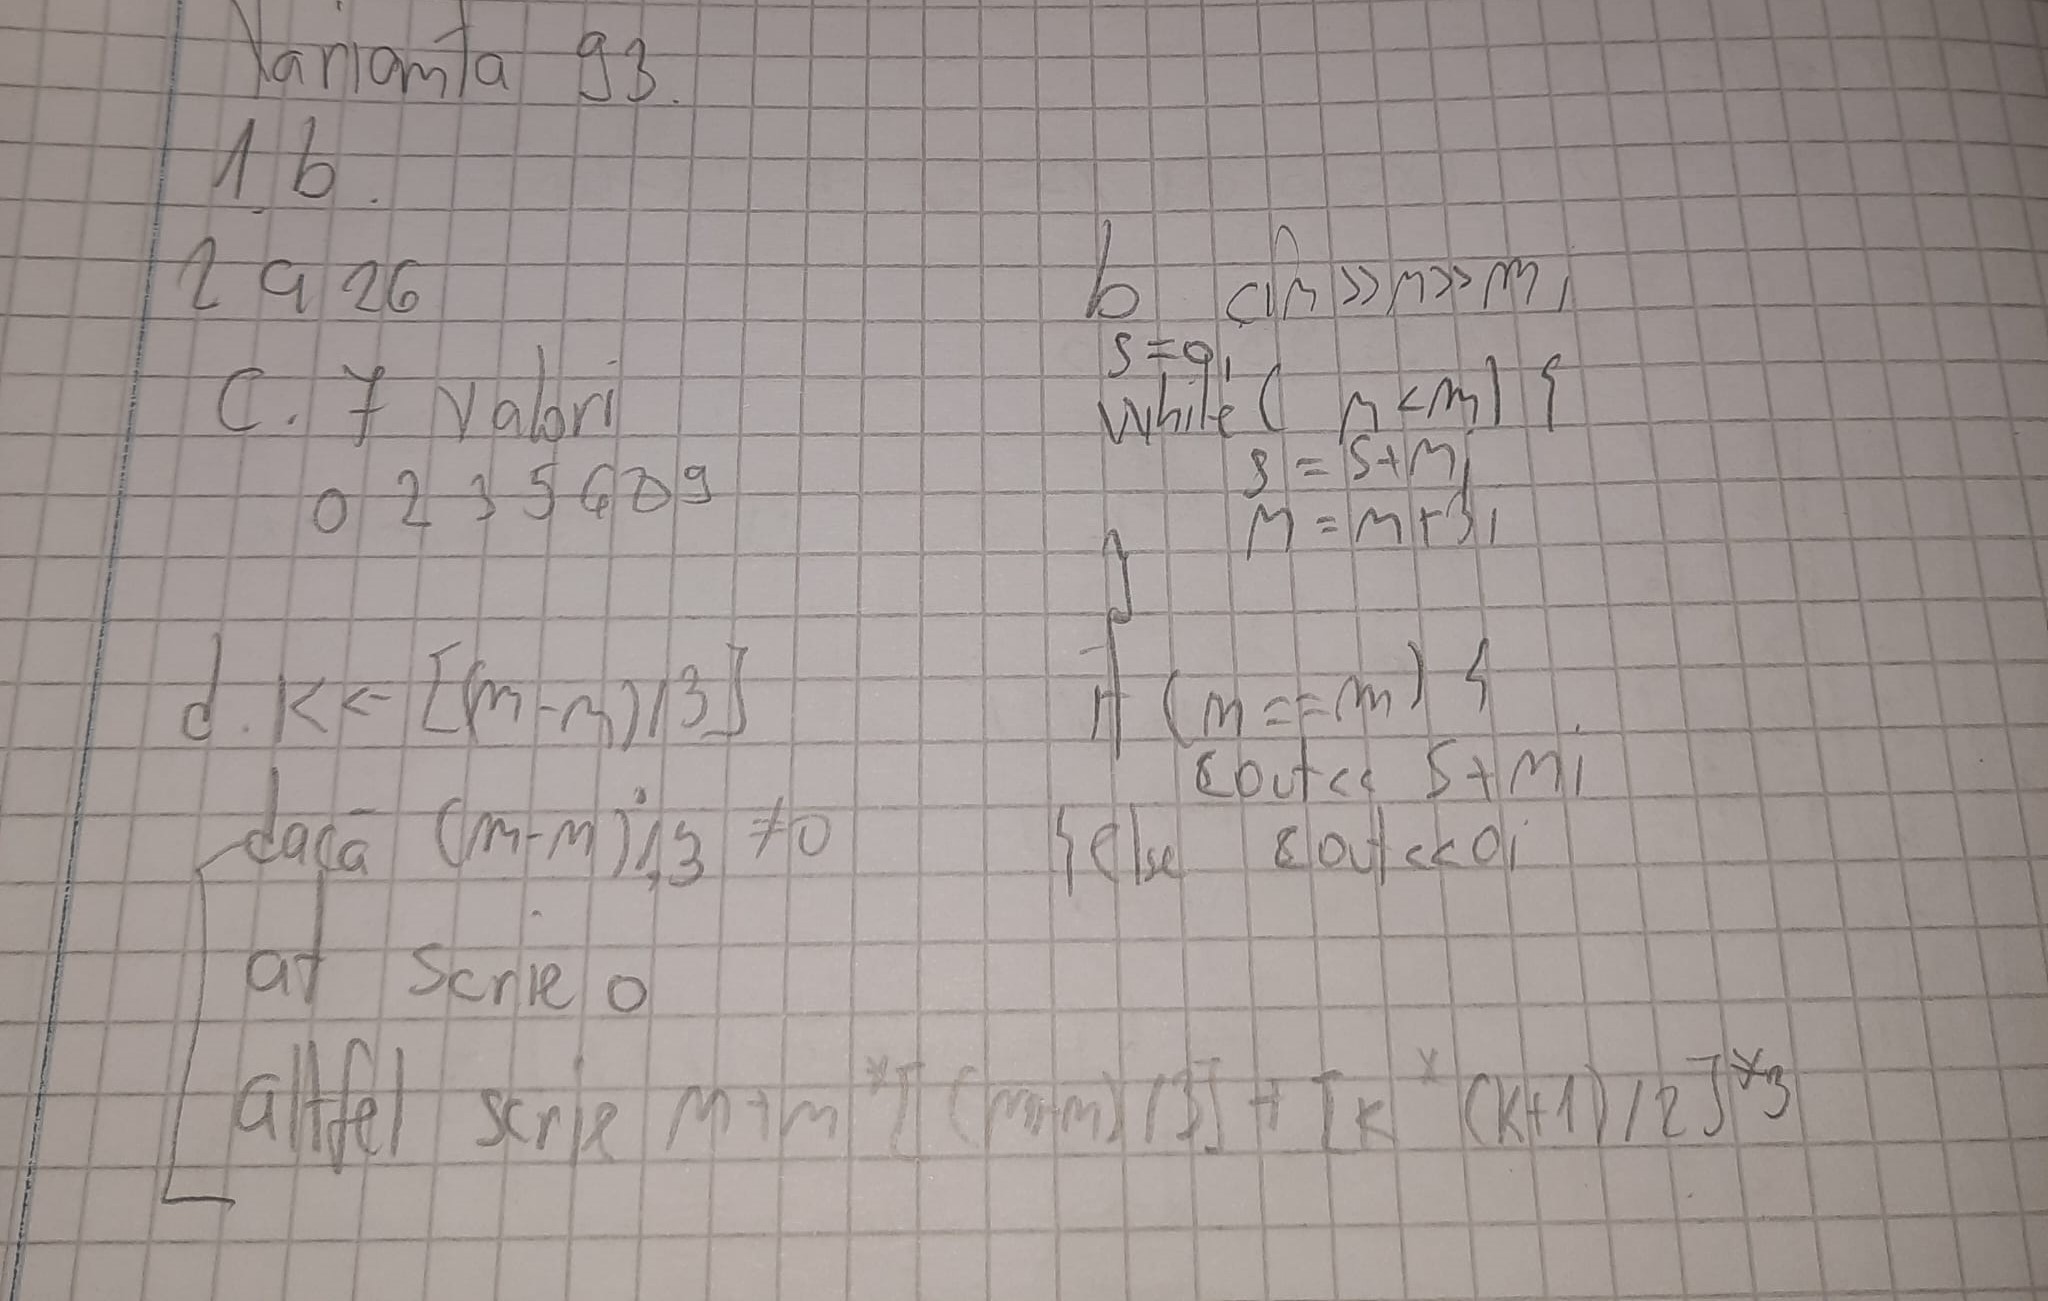 Varianta 93.
1. b.
2 a 26
C. 7 valori
0 2 3 5 6 8 9
d. k ← [(m-n)/3]
dacă (m-n)%3 ≠ 0
at scrie 0
altfel scrie n+n*[(m-n)/3]+[k*(k+1)/2]*3
b cin>>n>>m;
s=0;
while( n<m) {
s=s+n;
n=n+3;
}
if (n==m) {
cout<< s+m;
}else cout<<0;